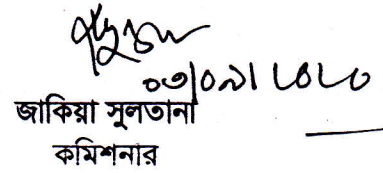 ০৩/০৯/২০২০
জাকিয়া সুলতানা
কমিশনার